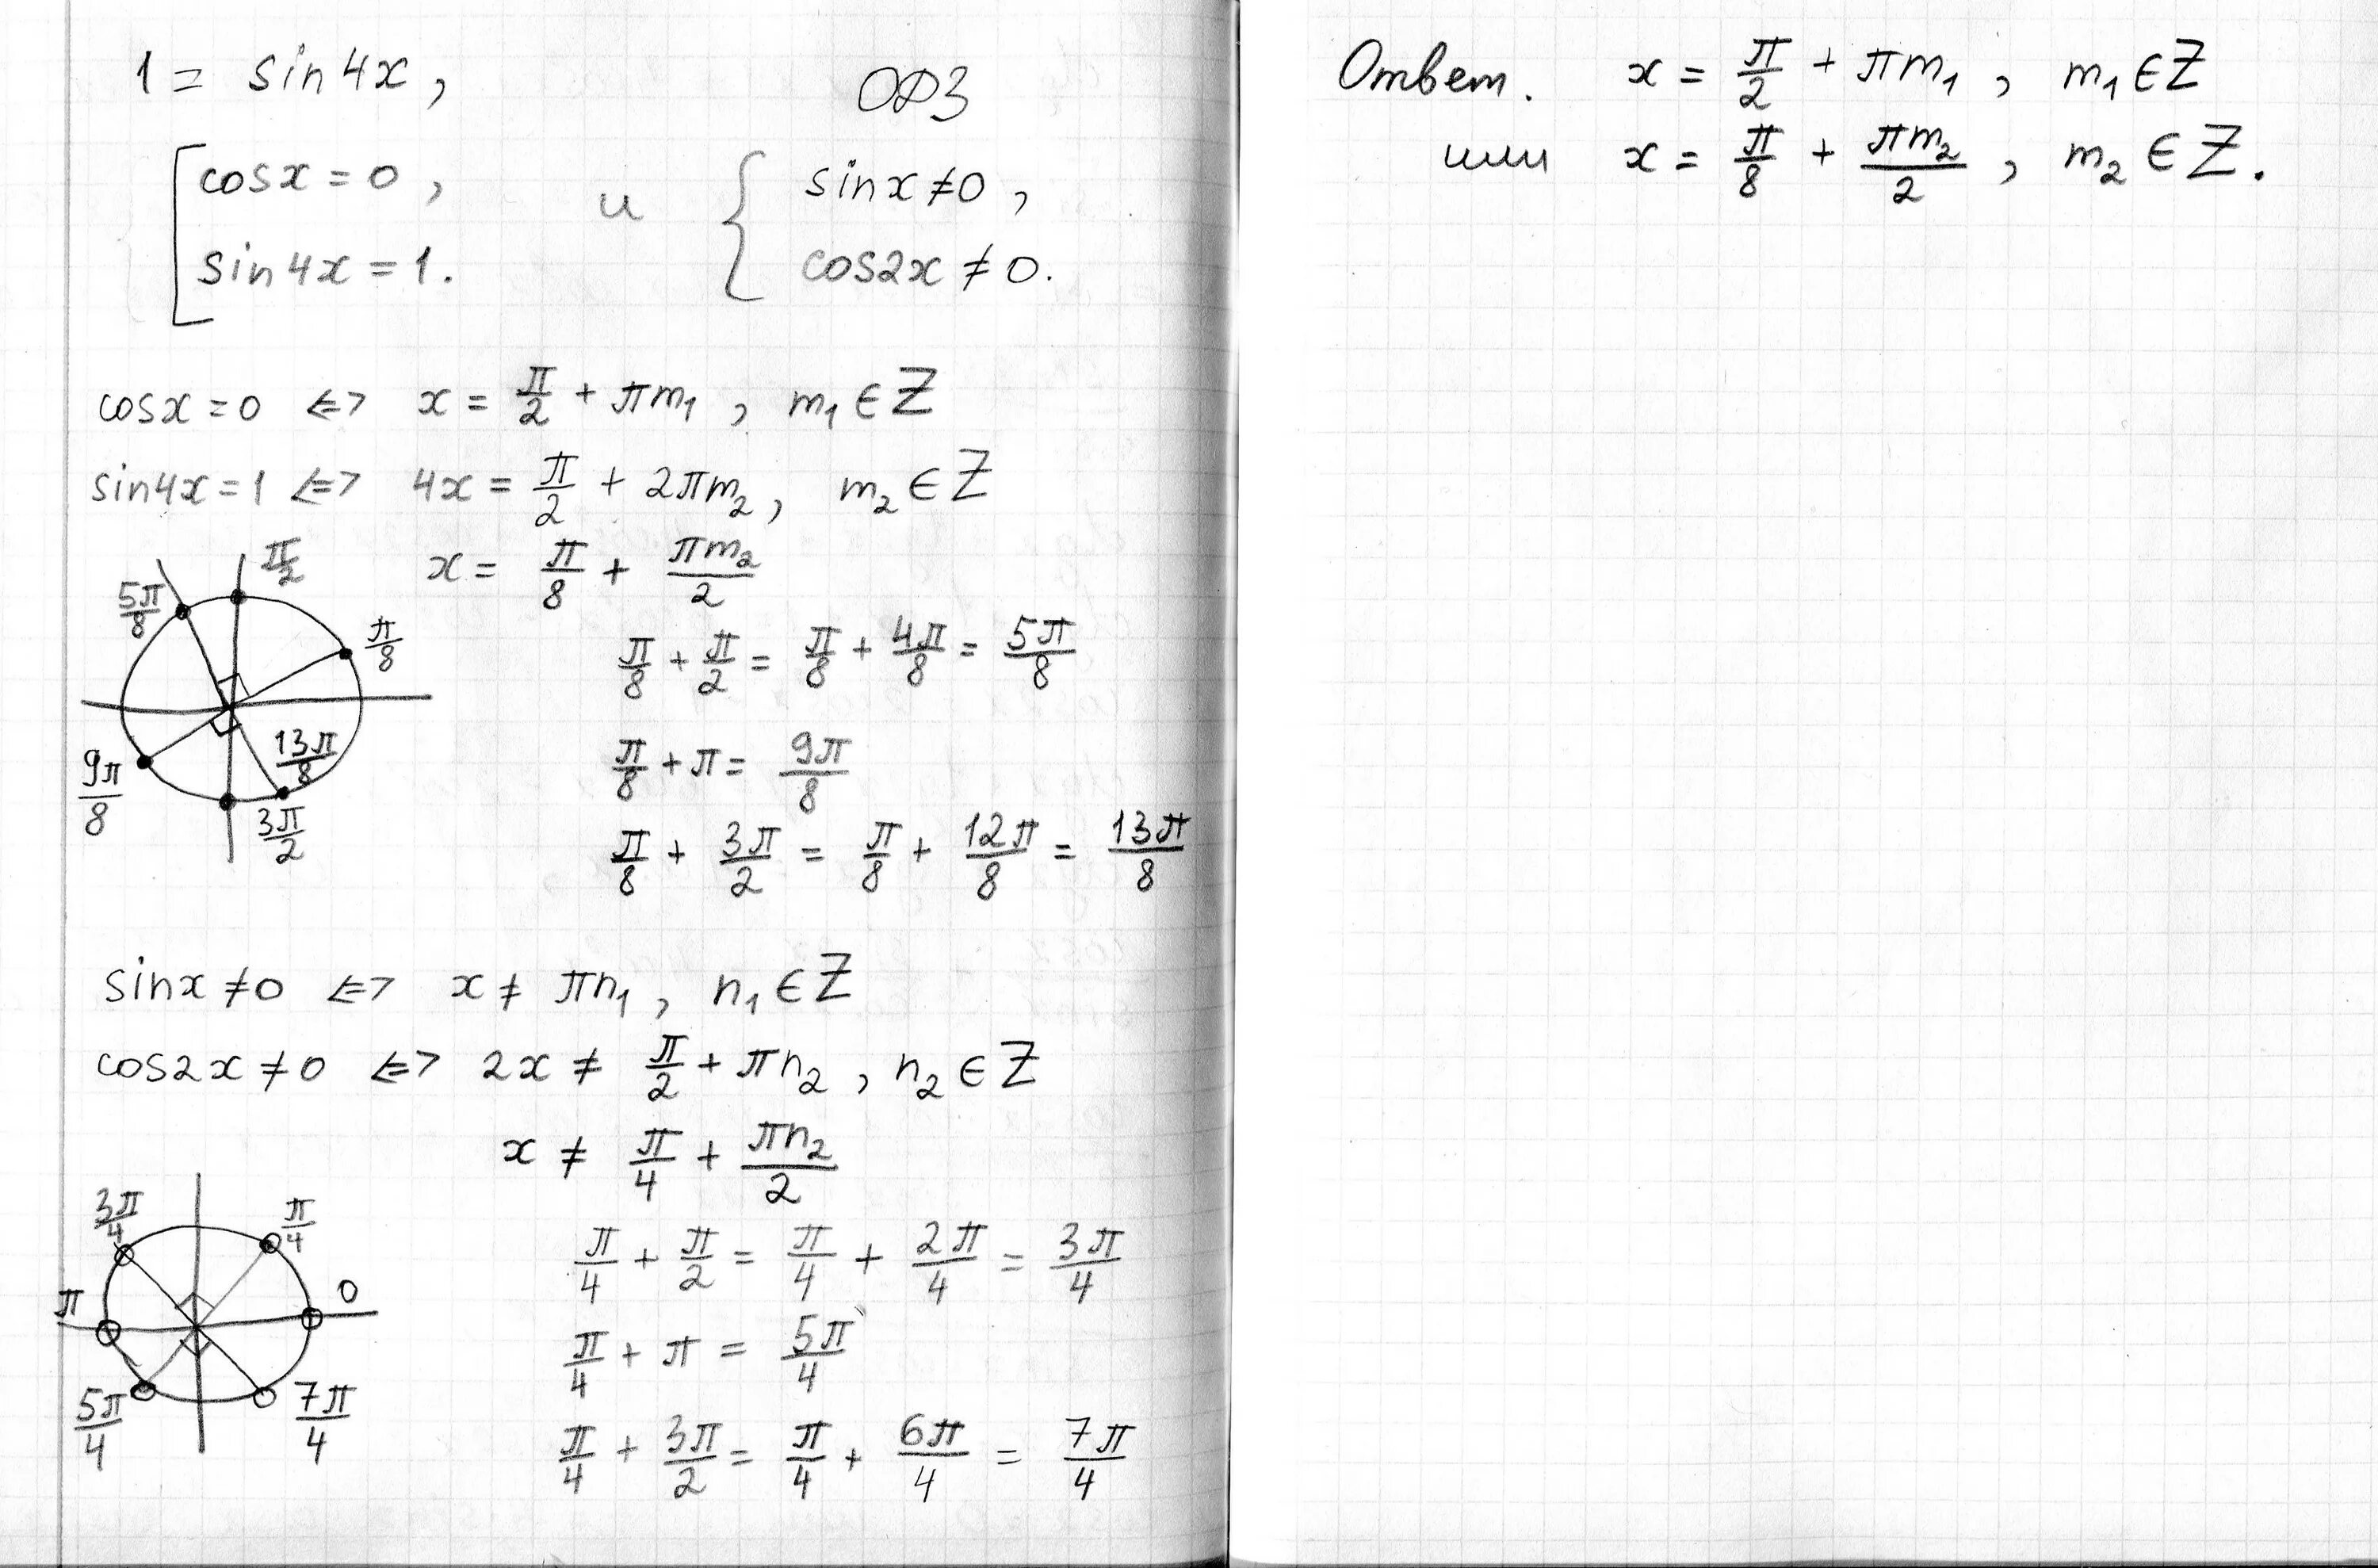 1 = sin4x,
ОДЗ
[ cosx = 0,
sin4x = 1.
и
{ sinx ≠ 0,
cos2x ≠ 0.
cosx = 0 <=> x = π/2 + πm₁, m₁ ∈ Z
sin4x = 1 <=> 4x = π/2 + 2πm₂, m₂ ∈ Z
x = π/8 + πm₂/2
π/2
5π/8
π/8
9π/8
13π/8
3π/2
π/8 + π/2 = π/8 + 4π/8 = 5π/8
π/8 + π = 9π/8
π/8 + 3π/2 = π/8 + 12π/8 = 13π/8
sinx ≠ 0 <=> x ≠ πn₁, n₁ ∈ Z
cos2x ≠ 0 <=> 2x ≠ π/2 + πn₂, n₂ ∈ Z
x ≠ π/4 + πn₂/2
3π/4
π/4
π
0
5π/4
7π/4
π/4 + π/2 = π/4 + 2π/4 = 3π/4
π/4 + π = 5π/4
π/4 + 3π/2 = π/4 + 6π/4 = 7π/4
Ответ. x = π/2 + πm₁, m₁ ∈ Z
или x = π/8 + πm₂/2, m₂ ∈ Z.